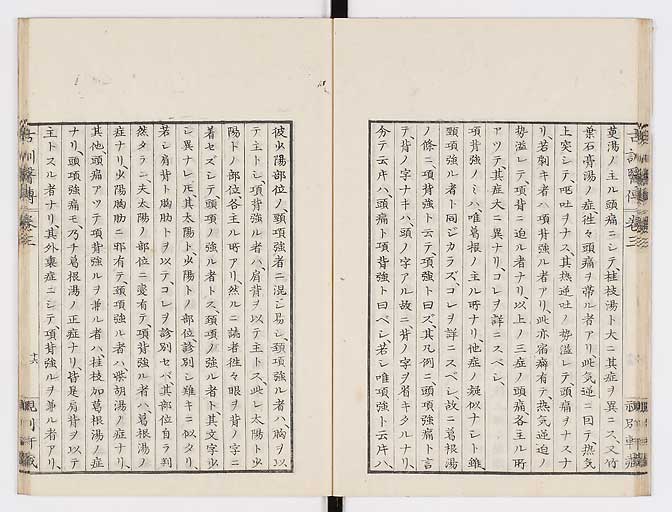 萸湯ノ主ル頭痛ニシテ、桂枝湯ト大ニ其症ヲ異ニス、又竹
葉石膏湯ノ症、往々頭痛ヲ帯ル者アリ、此気逆ニ因テ、熱気
上突シテ、呕吐ヲナス、其熱逆吐ノ勢溢レテ、頭痛ヲナスナ
リ、若刺キ者ハ項背強ル者アリ、此亦宿癖有テ、熱気逆迫ノ
勢溢レテ、項背ニ迫ル者ナリ、以上ノ三症ノ頭痛、各主ル所
アツテ、其症大ニ異ナリ、コレヲ詳ニスベシ、
項背強ノミハ、唯葛根ノ主ル所ナリ、他症ノ疑似ナシト雖、
頸項強ル者ト同ジカラズ、コレヲ詳ニスベシ、故ニ葛根湯
ノ條ニ、項背強ト云テ、項強ト曰ズ、其凡例ニ、頭項強痛ト言
テ、背ノ字ナキハ、頭ノ字アル故ニ、背ノ字ヲ省キタルナリ、
分テ云片ハ、頭痛ト項背強ト曰ベシ、若シ唯項強ト云片ハ、
彼少陽部位ノ、頸項強者ニ混シ易シ、頸項強ル者ハ、胸ヲ以
テ主トシ、項背強ル者ハ、肩背ヲ以テ主トス、此レ太陽ト少
陽トノ部位、各主ル所アリ、然ルニ讀者往々眼ヲ背ノ字ニ
着セズシテ、頭項ノ強ル者トス、頸項ノ強ル者ト其文字少
シ異ナレ𪜈、其太陽ト少陽トノ部位診別シ難キニ似タリ、
若シ肩背ト胸肋トヲ以テ、コレヲ診別セバ、其部位自ラ判
然タラン、夫太陽ノ部位ニ変有テ、項背強ル者ハ、葛根湯ノ
症ナリ、少陽胸肋ニ邪有テ、頸項強ル者ハ、柴胡湯ノ症ナリ、
其他、頭痛アツテ、項背強ルヲ兼ル者ハ、桂枝加葛根湯ノ症
ナリ、頭項強痛モ、乃チ葛根湯ノ正症ナリ、皆是肩背ヲ以テ
主トスル者ナリ、其外裏症ニシテ、項背強ルヲ兼ル者アリ、
古訓醫傳 卷三